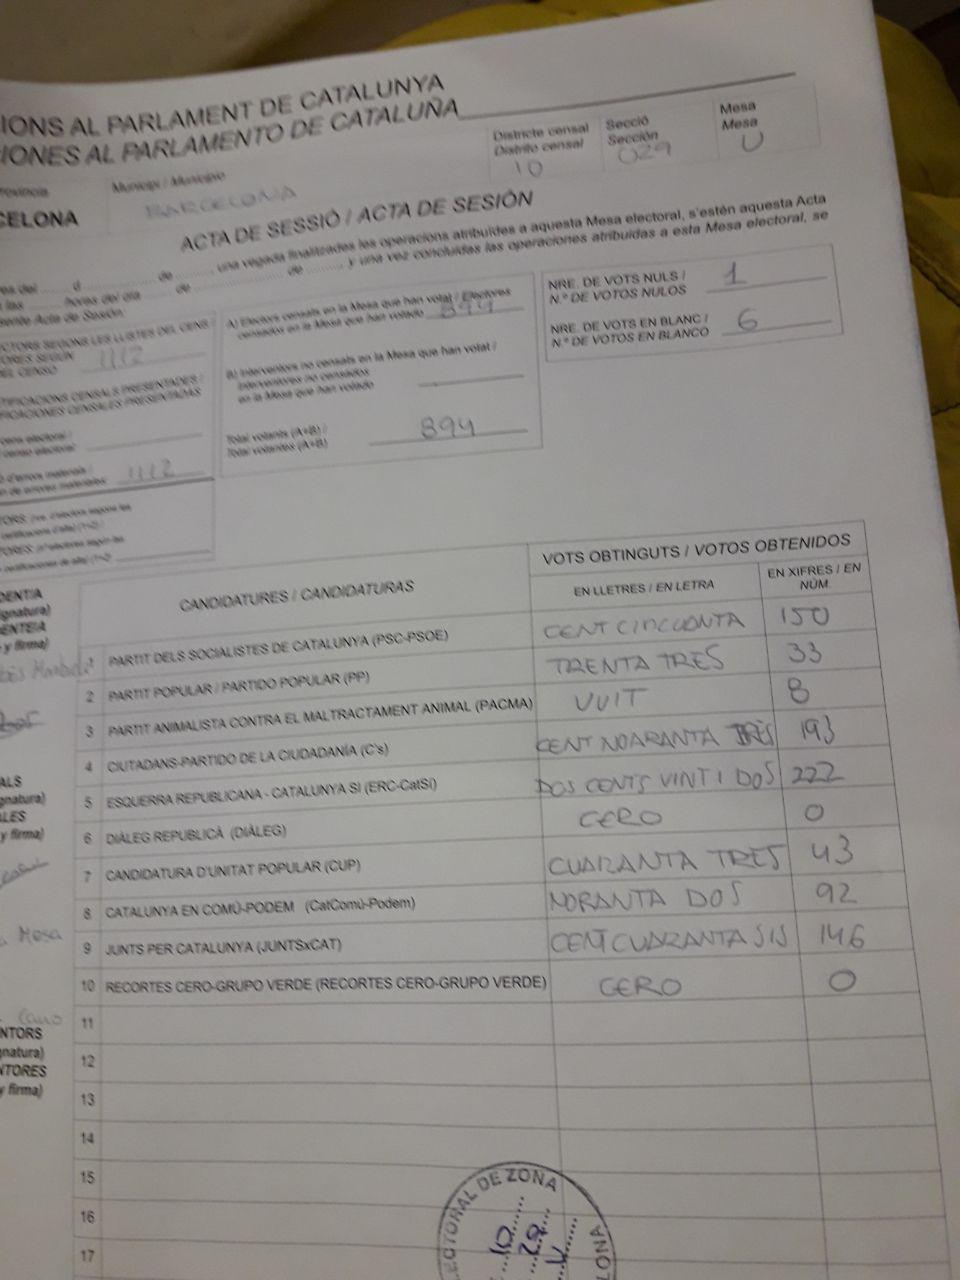 IONS AL PARLAMENT DE CATALUNYA
IONES AL PARLAMENTO DE CATALUÑA
Districte censal
Distrito censal
10
Secció
Sección
029
Mesa
Mesa
U
Provincia
CELONA
Municipi / Municipio
BARCELONA
ACTA DE SESSIÓ / ACTA DE SESIÓN
una vegada finalitzades les operacions atribuïdes a aquesta Mesa electoral, s'estén aquesta Acta
y una vez concluidas las operaciones atribuidas a esta Mesa electoral, se
sente Acta de Sesión.
CTORS SEGONS LES LLISTES DEL CENS /
TORES SEGÚN
DEL CENSO 1112
TIFICACIONS CENSALS PRESENTADES /
FICACIONES CENSALES PRESENTADAS
cens electoral /
censo electoral:
d'errors materials /
n de errores materiales: 1112
A) Electors censats en la Mesa que han votat / Electores
censados en la Mesa que han votado 894
B) Interventors no censats en la Mesa que han votat /
Interventores no censados
en la Mesa que han votado
Total votants (A+B) /
Total votantes (A+B) 894
NRE. DE VOTS NULS /
N.º DE VOTOS NULOS 1
NRE. DE VOTS EN BLANC /
N.º DE VOTOS EN BLANCO 6
CANDIDATURES / CANDIDATURAS
VOTS OBTINGUTS / VOTOS OBTENIDOS
EN LLETRES / EN LETRA
EN XIFRES / EN
NÚM.
1 PARTIT DELS SOCIALISTES DE CATALUNYA (PSC-PSOE) CENT CINCUONTA 150
2 PARTIT POPULAR / PARTIDO POPULAR (PP) TRENTA TRES 33
3 PARTIT ANIMALISTA CONTRA EL MALTRACTAMENT ANIMAL (PACMA) VUIT 8
4 CIUTADANS-PARTIDO DE LA CIUDADANÍA (C's) CENT NOARANTA TRES 193
5 ESQUERRA REPUBLICANA - CATALUNYA SÍ (ERC-CatSí) DOS CENTS VINT I DOS 222
6 DIÀLEG REPUBLICÀ (DIÀLEG) CERO 0
7 CANDIDATURA D'UNITAT POPULAR (CUP) CUARANTA TRES 43
8 CATALUNYA EN COMÚ-PODEM (CatComú-Podem) NORANTA DOS 92
9 JUNTS PER CATALUNYA (JUNTSxCAT) CENT CUARANTA SIS 146
10 RECORTES CERO-GRUPO VERDE (RECORTES CERO-GRUPO VERDE) CERO 0
11
12
13
14
15
16
17
DENTIA
ignatura)
ENTE/A
y firma)
ALS
gnatura)
LES
y firma)
Mesa
Cano
NTORS
gnatura)
NTORES
y firma)
ECTORAL DE ZONA
10
29
U